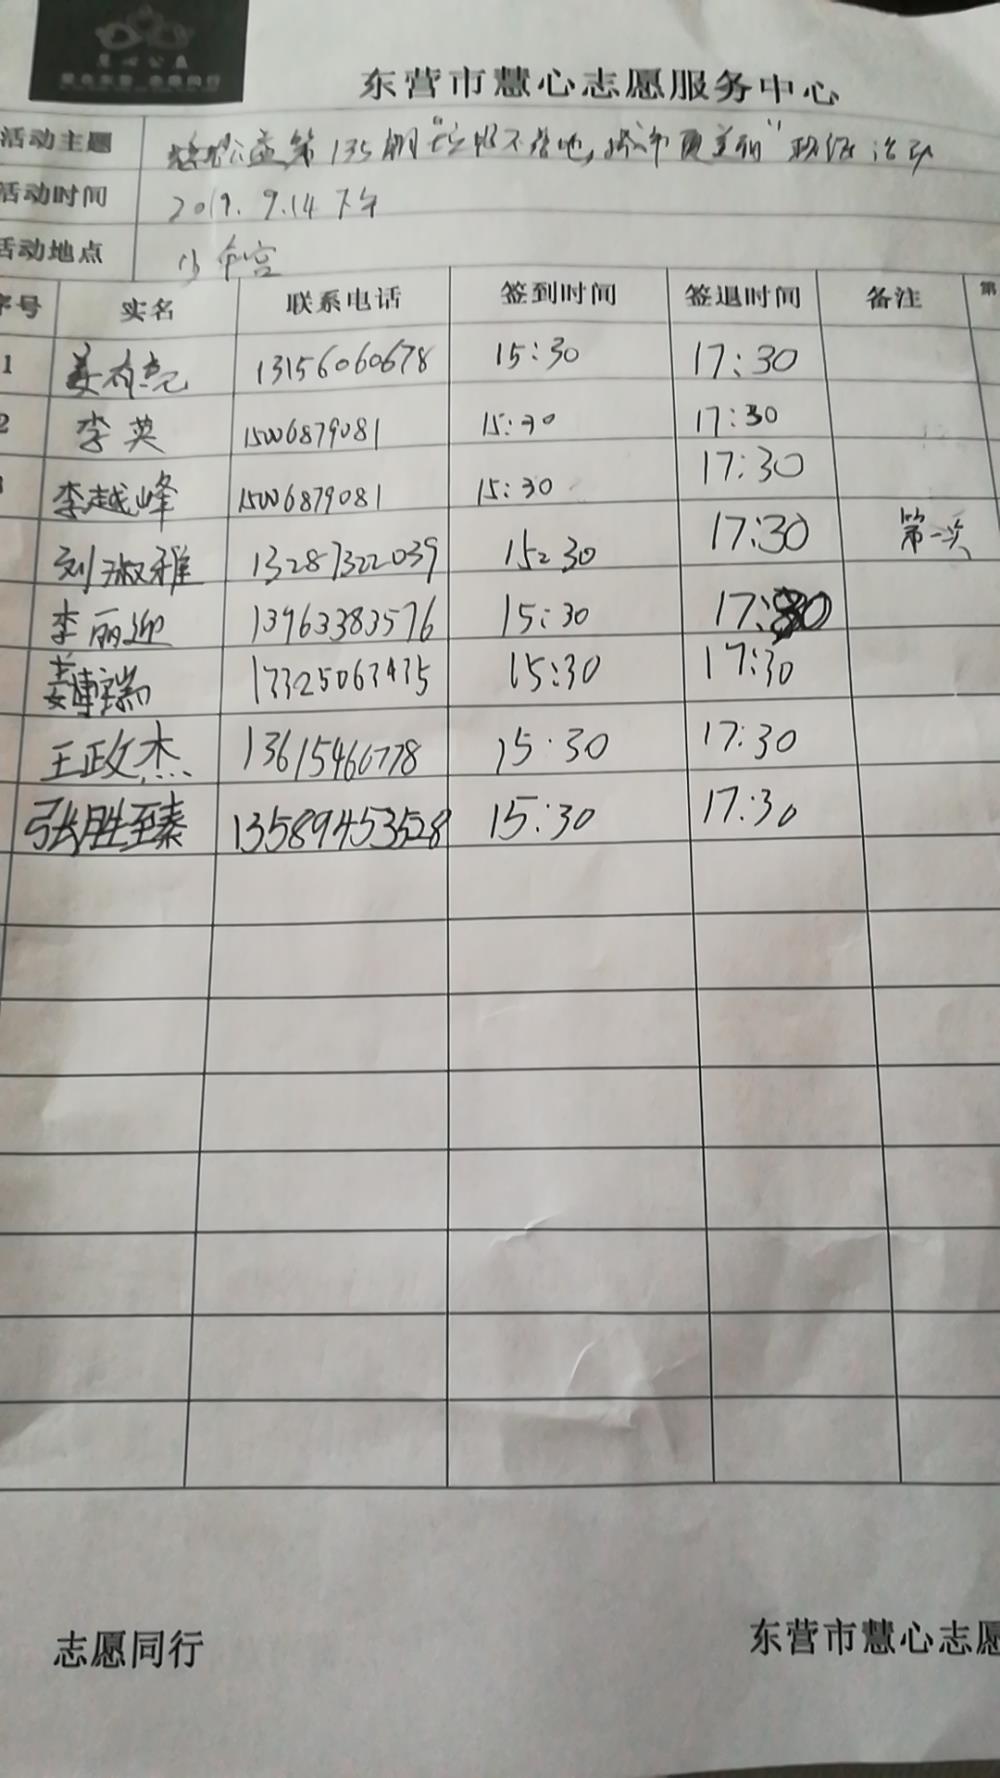 东营市慧心志愿服务中心
活动主题 公益第135期"垃圾不落地,城市更美丽" 活动
活动时间 2019.9.14下午
活动地点 少年宫
序号 实名 联系电话 签到时间 签退时间 备注 第
1 姜有亮 13156060678 15:30 17:30
2 李英 15006879081 15:30 17:30
3 李越峰 15006879081 15:30 17:30
刘淑雅 13287322039 15:30 17:30 第一次
李丽迎 13963383576 15:30 17:30
姜博瑞 15:30 17:30
王政杰 13615466778 15:30 17:30
张胜至臻 13589453528 15:30 17:30
志愿同行 东营市慧心志愿